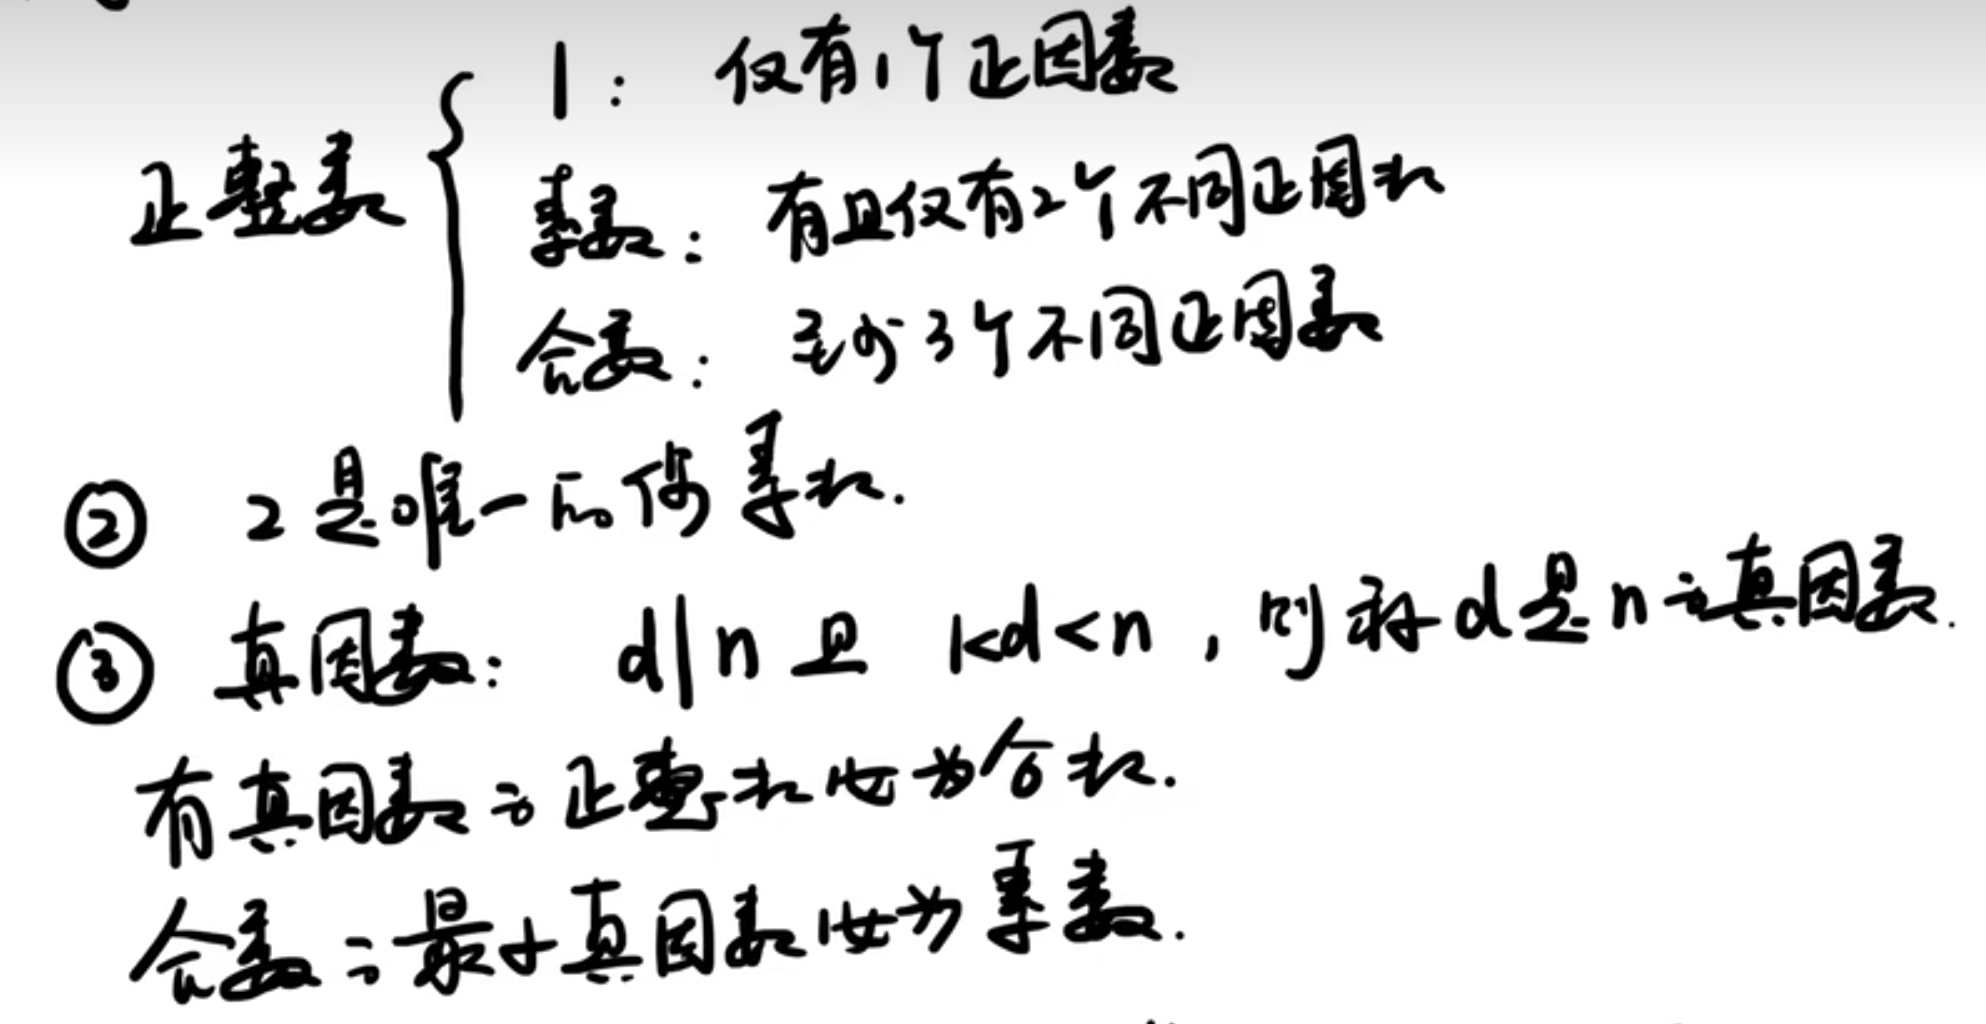 1：仅有1个正因数
正整数
素数：有且仅有2个不同正因数
合数：至少3个不同正因数
② 2是唯一的偶素数.
③ 真因数：d|n 且 1<d<n，则称d是n的真因数.
有真因数的正整数必为合数.
合数的最小真因数必为素数.